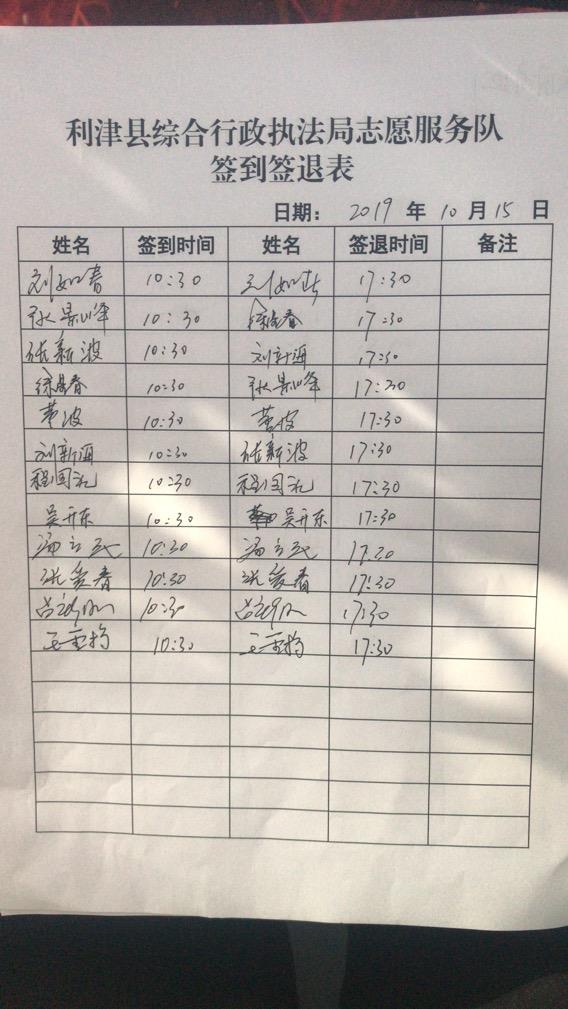 利津县综合行政执法局志愿服务队
签到签退表
日期: 2019 年 10 月 15 日
姓名 签到时间 姓名 签退时间 备注
刘如春 10:30 刘如春 17:30
张景峰 10:30 徐春 17:30
张新波 10:30 刘新海 17:30
徐春 10:30 张景峰 17:30
董波 10:30 董波 17:30
刘新海 10:30 张新波 17:30
程国礼 10:30 程国礼 17:30
吴开东 10:30 吴开东 17:30
10:30 17:30
张爱春 10:30 张爱春 17:30
10:30 17:30
10:30 17:30